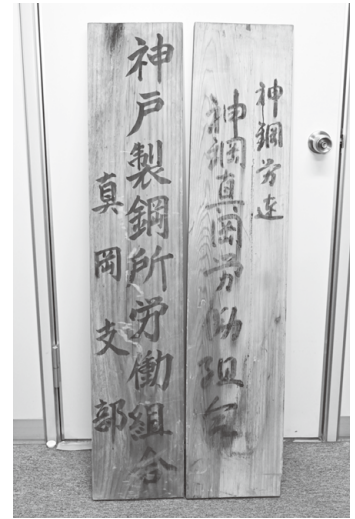 神鋼労連
神鋼真岡労働組合
神戸製鋼所労働組合
真岡支部